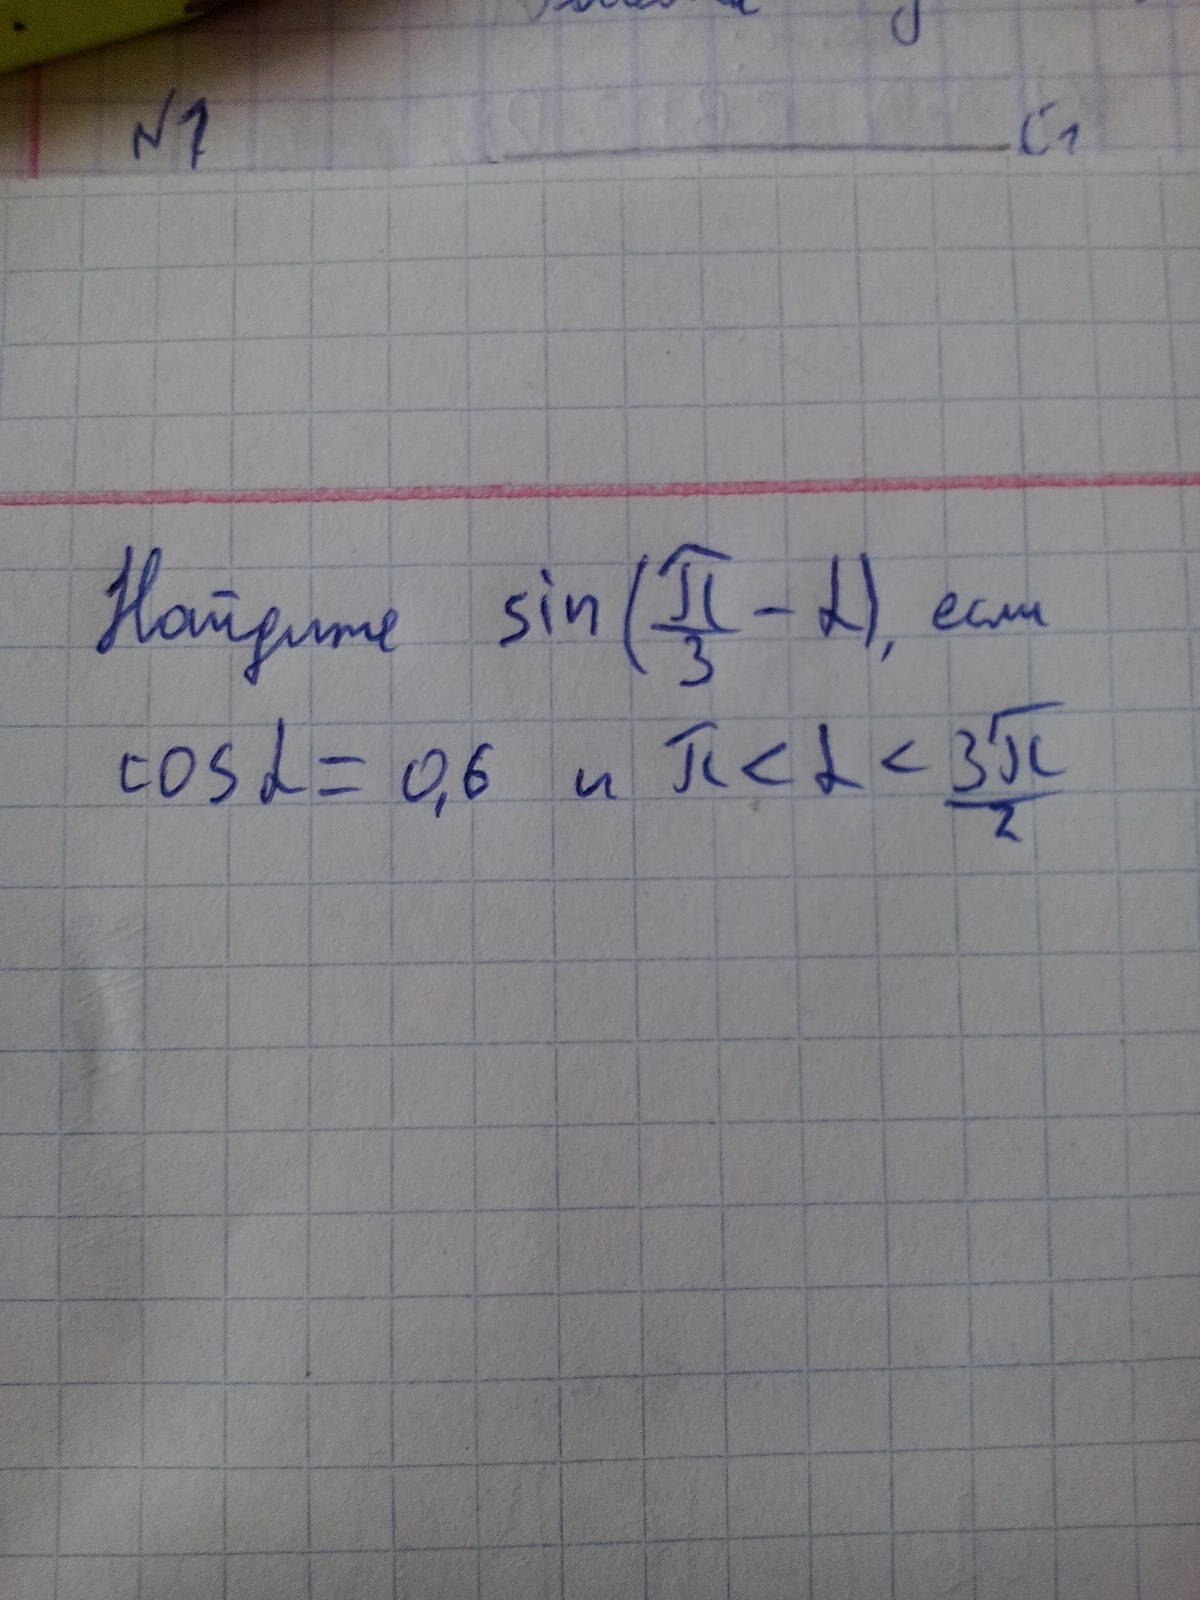 N1 C1
Найдите sin(π/3 - α), если
cos α = 0,6 и π < α < 3π/2